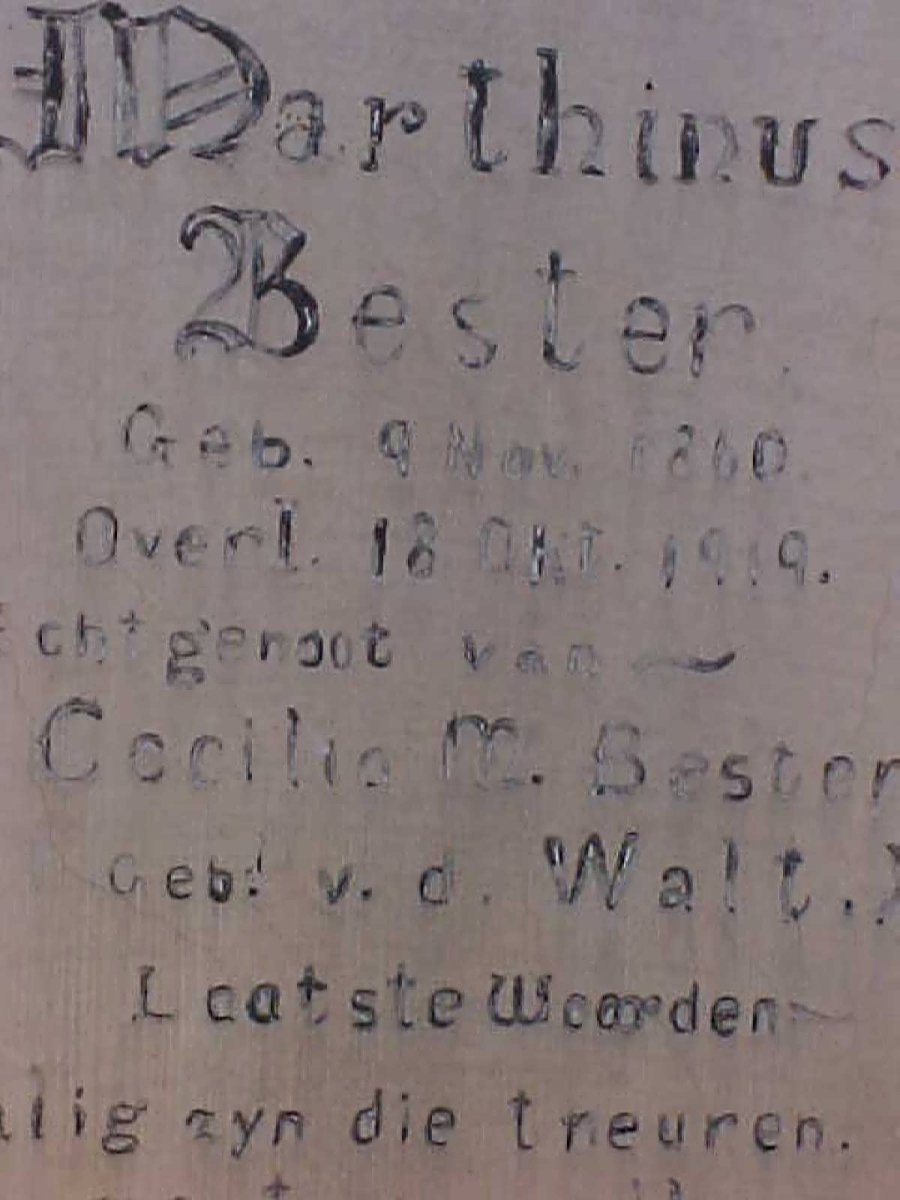 Marthinus
Bester.
Geb. 9 Nov. 1860.
Overl. 18 Okt. 1919.
Echtgenoot van ~
Cecilia M. Bester
Geb: v. d. Walt.
Laatste Woorden ~
zyn die treuren.